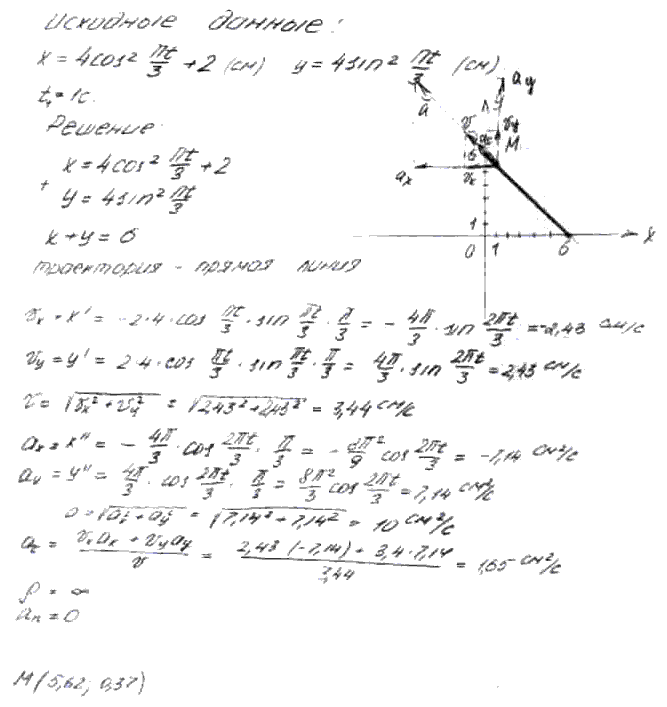 Исходные данные:
x = 4cos² πt/3 + 2 (см)   y = 4sin² πt/3 (см)
t₁ = 1c.
Решение
x = 4cos² πt/3 + 2
+
y = 4sin² πt/3
x + y = 6
траектория - прямая линия
a ay y v vy M
ax vx
1
0 1 6 x
vx = x' = -2·4·cos πt/3 · sin πt/3 · π/3 = - 4π/3 · sin 2πt/3 = -2,43 см/с
vy = y' = 2·4·cos πt/3 · sin πt/3 · π/3 = 4π/3 · sin 2πt/3 = 2,43 см/с
v = √vx² + vy² = √2,43² + 2,43² = 3,44 см/с
ax = x'' = - 4π/3 · cos 2πt/3 · π/3 = - 8π²/9 cos 2πt/3 = -7,14 см²/с
ay = y'' = 4π/3 · cos 2πt/3 · π/3 = 8π²/3 cos 2πt/3 = 7,14 см²/с
a = √ax² + ay² = √7,14² + 7,14² = 10 см²/с
aτ = (vx ax + vy ay)/v = (2,43 (-7,14) + 3,4·7,14)/3,44 = 1,65 см²/с
ρ = ∞
an = 0
M (5,62; 0,37)